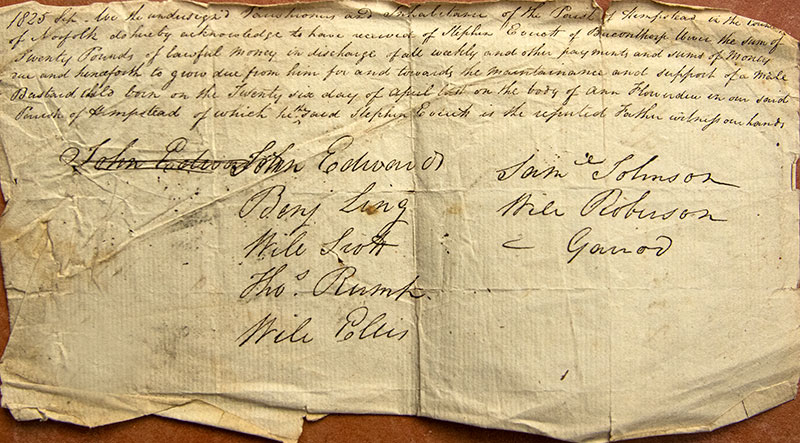 1825 Sep. We the undersign'd Parishioners and Inhabitance of the Parish of Hempstead in the County
of Norfolk do hereby acknowledge to have received of Stephen Everett of Baconthorp the sum of
Twenty Pounds of lawful money in discharge of all weekly and other payments and sums of money
due and henceforth to grow due from him for and towards the maintainance and support of a Male
Bastard child born on the Twenty six day of April last on the body of Ann Flowerdew in our said
Parish of Hempstead of which he the said Stephen Everett is the reputed Father witness our hands
John Edward John Edward
Benj Ling
Will Scott
Thos. Rump.
Will Ellis
Saml Johnson
Will Roberson
Garrod